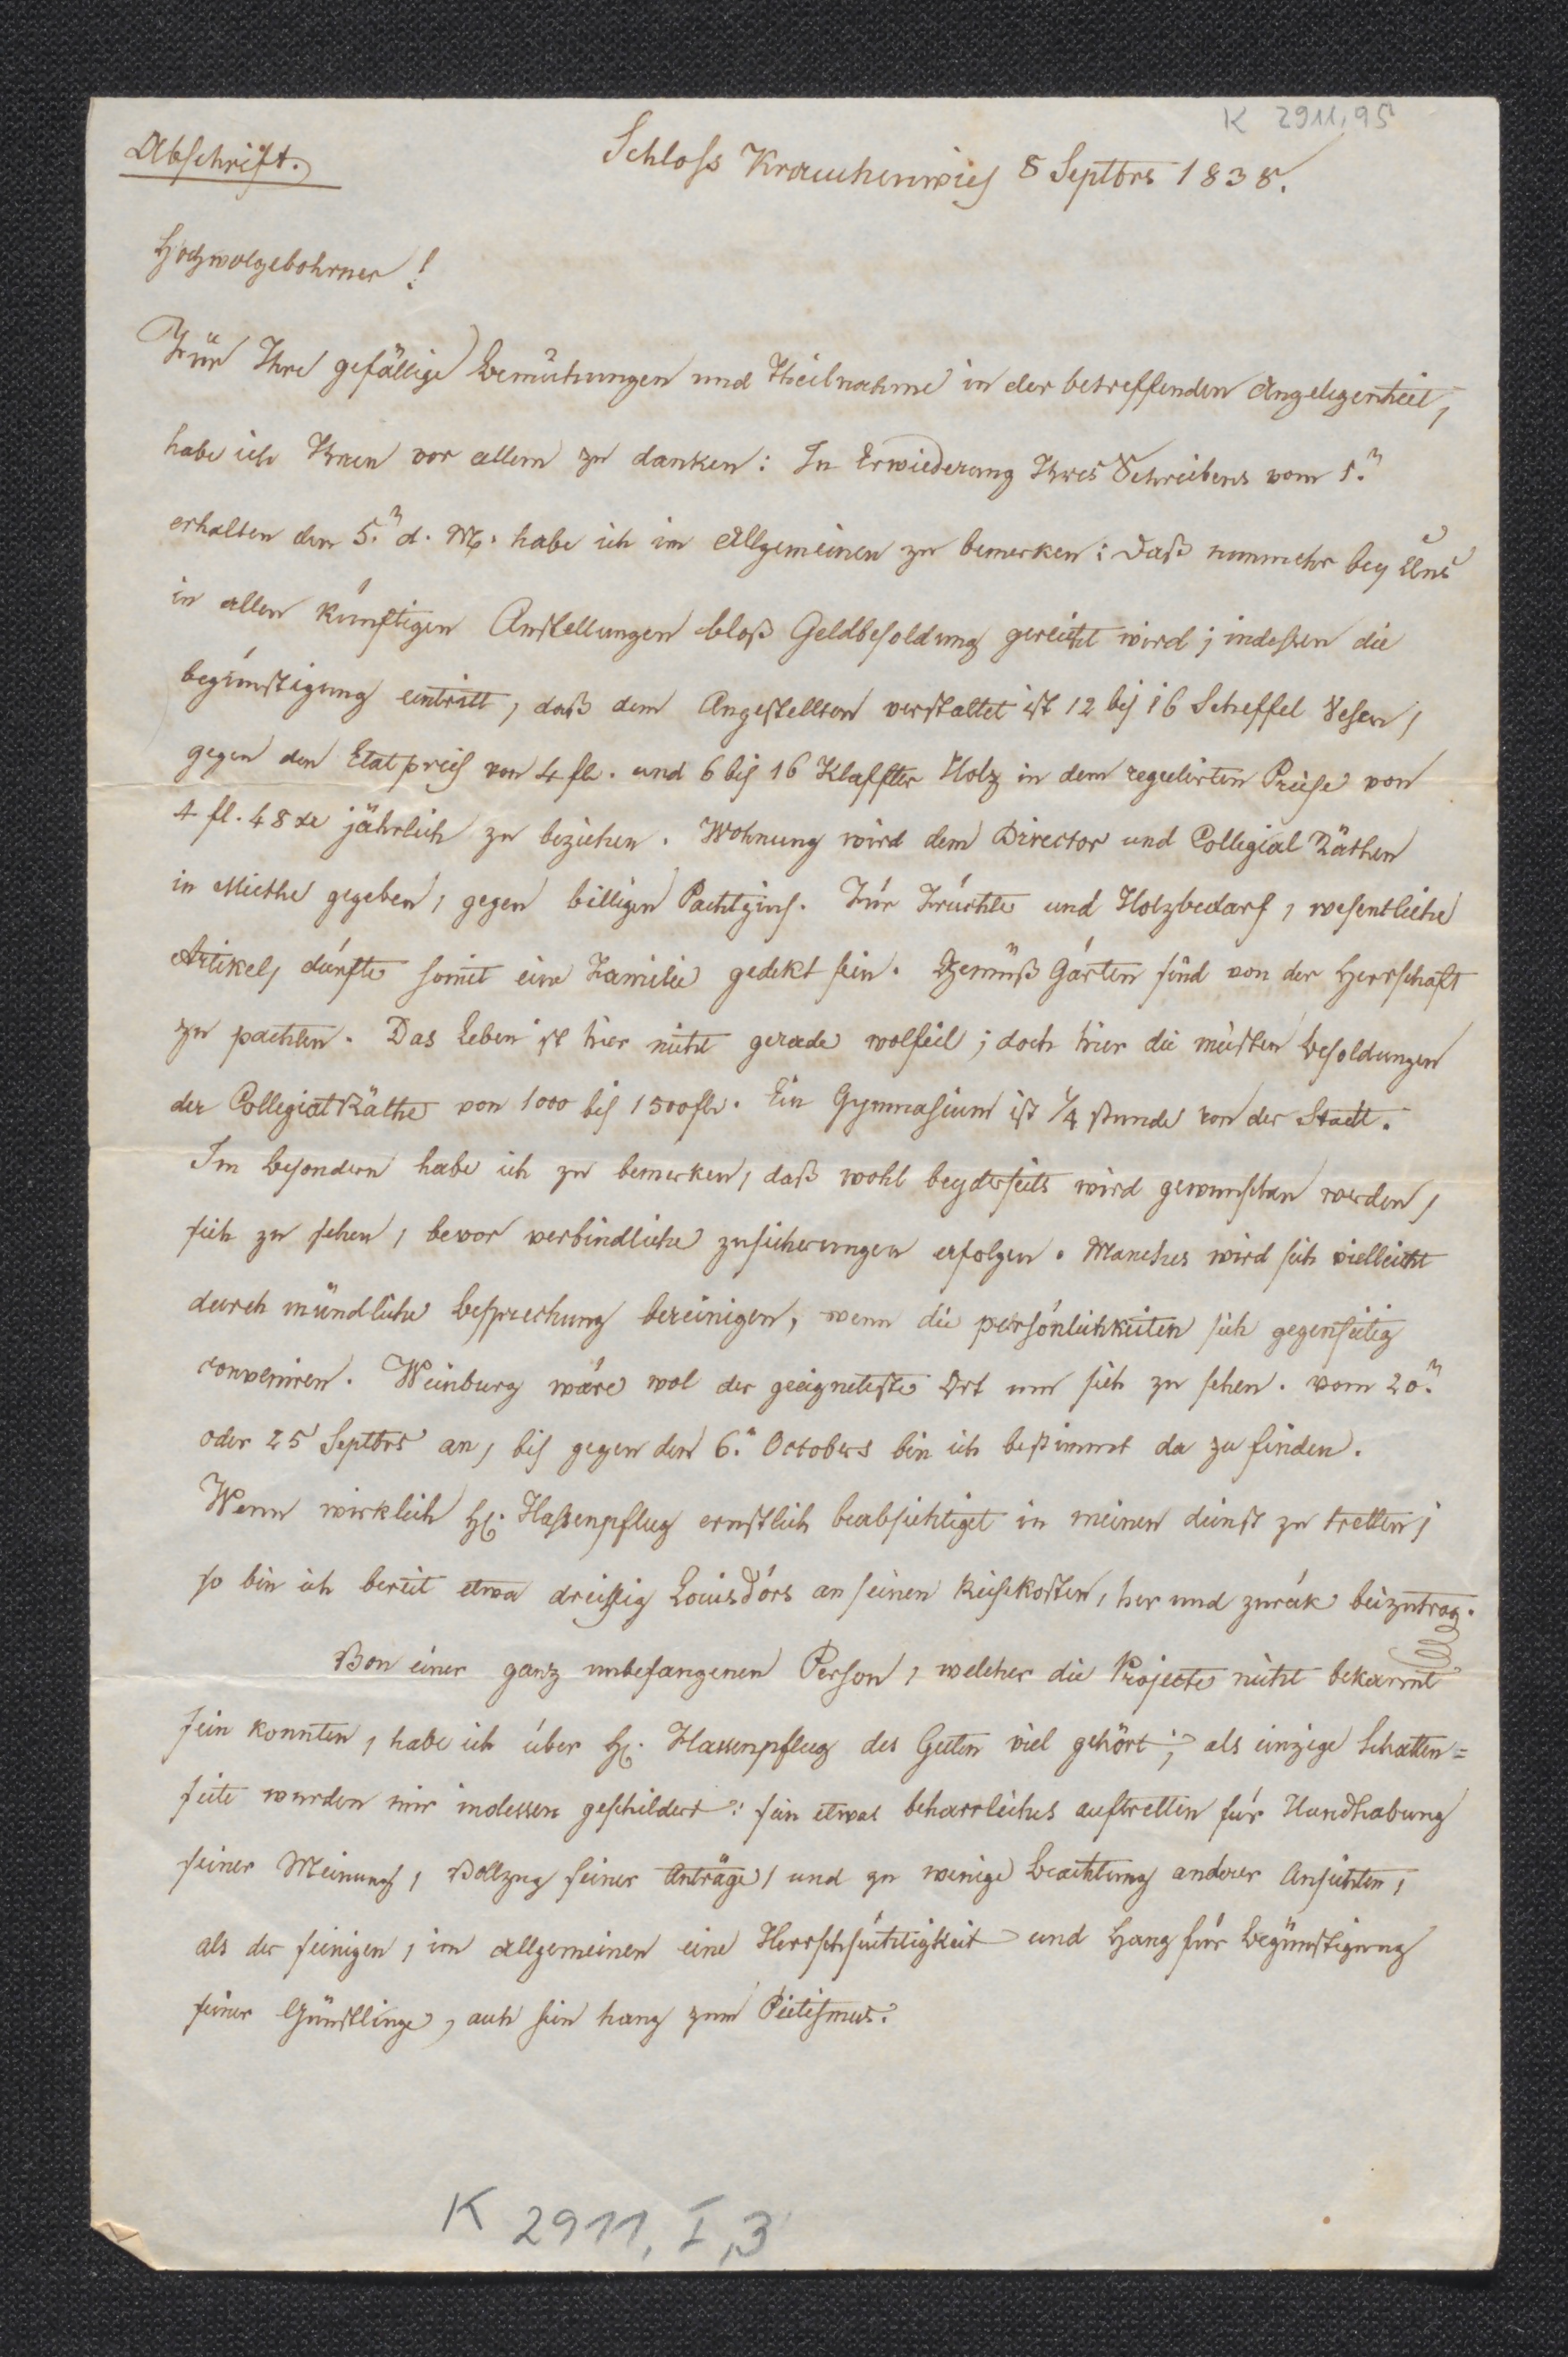 K 2911,95
Abschrift.
Schloss Krauchenwies 8 Septbrs 1838.
Hochwolgebohrner!
Für Ihre gefällige bemühungen und Theilnahme in der betreffenden Angelegenheit,
habe ich Ihnen vor allem zu danken: In Erwiederung Ihres Schreibens vom 1.n
erhalten den 5.n d. M. habe ich im Allgemeinen zu bemerken: daß nunmehr bey Uns
in allen künftigen Anstellungen bloß Geldbesoldung gereicht wird; indessen die
begünstigung eintritt, daß dem Angestellten verstattet ist 12 bis 16 Scheffel Vesen,
gegen den Etatpreis von 4 fl. und 6 bis 16 Klaffter Holz in dem regulirten Preise von
4 fl. 48 xr jährlich zu beziehen. Wohnung wird dem Director und Collegial Räthen
in Miethe gegeben, gegen billigen Pachtzins. Für Früchte und Holzbedarf, wesentliche
Artikel, dürfte somit eine Familie gedekt sein. Gemüß Gärten sind von der Herrschaft
zu pachten. Das Leben ist hier nicht gerade wolfeil; doch hier die meisten besoldungen
der Collegial Räthe von 1000 bis 1500 fl. Ein Gymnasium ist 1/4 stunde von der Stadt.
Im besondern habe ich zu bemerken, daß wohl beyderseits wird gewunschen werden,
sich zu sehen, bevor verbindliche zusicherungen erfolgen. Manches wird sich vielleicht
durch mündliche besprechung bereinigen, wenn die persönlichkeiten sich gegenseitig
conveniren. Weinburg wäre wol der geeigneteste Ort um sich zu sehen. vom 20.n
oder 25 Septbrs an, bis gegen den 6.n Octobers bin ich bestimmt da zu finden.
Wenn wirklich H. Hassenpflug ernstlich beabsichtiget in meinen dienst zu tretten,
so bin ich bereit etwa dreissig Louisdórs an seinen Reisekosten, her und zurük beizutrag.
Von einer ganz unbefangenen Person, welcher die Projecte nicht bekannt
sein konnten, habe ich über H. Hassenpflug des Guten viel gehört; als einzige Schatten=
seite wurden mir indessen geschildert: sein etwas beharrliches auftretten für Handhabung
seiner Meinung, Vollzug seiner Anträge, und zu wenige beachtung anderer Ansichten,
als der seinigen, im allgemeinen eine Herrschsüchtigkeit und Hang für begünstigung
seiner Günstlinge, auch sein hang zum Pietismus.
K 2911, I,3